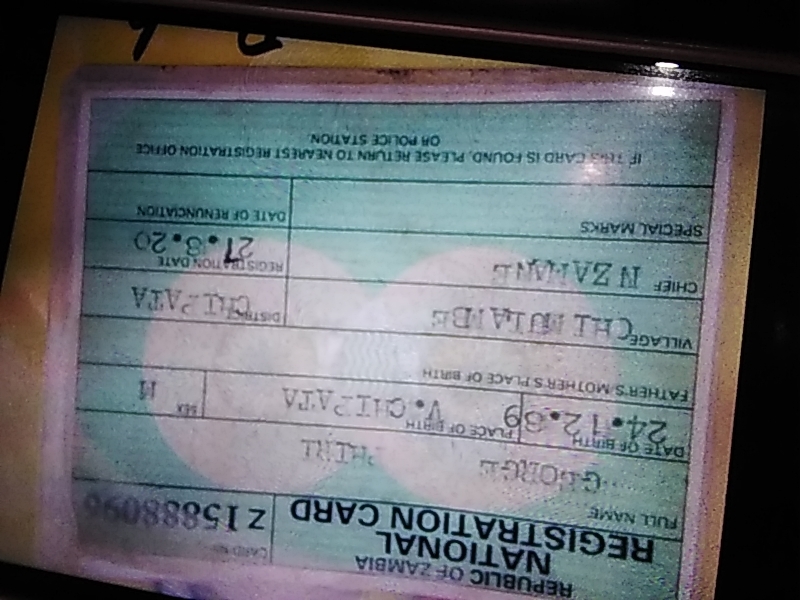 REPUBLIC OF ZAMBIA
NATIONAL
REGISTRATION CARD
CARD No
Z15888096
FULL NAME
GEORGE PHIRI
DATE OF BIRTH
24.12.69
PLACE OF BIRTH
V. CHIPATA
SEX
M
FATHER'S/MOTHER'S PLACE OF BIRTH
VILLAGE
DISTRICT
CHIPATA
CHIEF
NZAMANE
REGISTRATION DATE
SPECIAL MARKS
DATE OF RENUNCIATION
IF THIS CARD IS FOUND, PLEASE RETURN TO NEAREST REGISTRATION OFFICE
OR POLICE STATION.